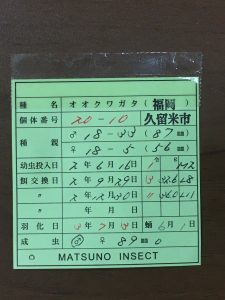 種名 オオクワガタ (福岡 久留米市)
個体番号 20-10
種親 ♂ 18-33 (87㎜)
♀ 18-5 (56㎜)
幼虫投入日 2年6月16日 1令
個交換日 2年9月29日 3 32.6 L8
〃 2年12月30日 3 36.0 L11
〃 年 月 日
羽化日 3年7月13日 蛹 6月1日
成虫 ♂ ♀ 89㎜0
MATSUNO INSECT